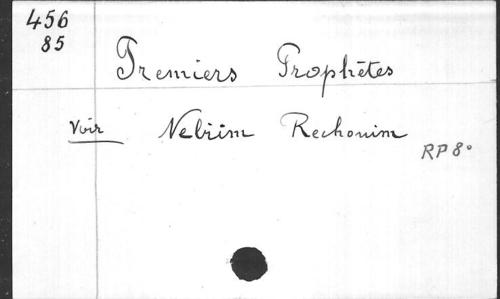 456
85
Premiers Prophètes
Voir Nebiim Rechonim
RP 8°